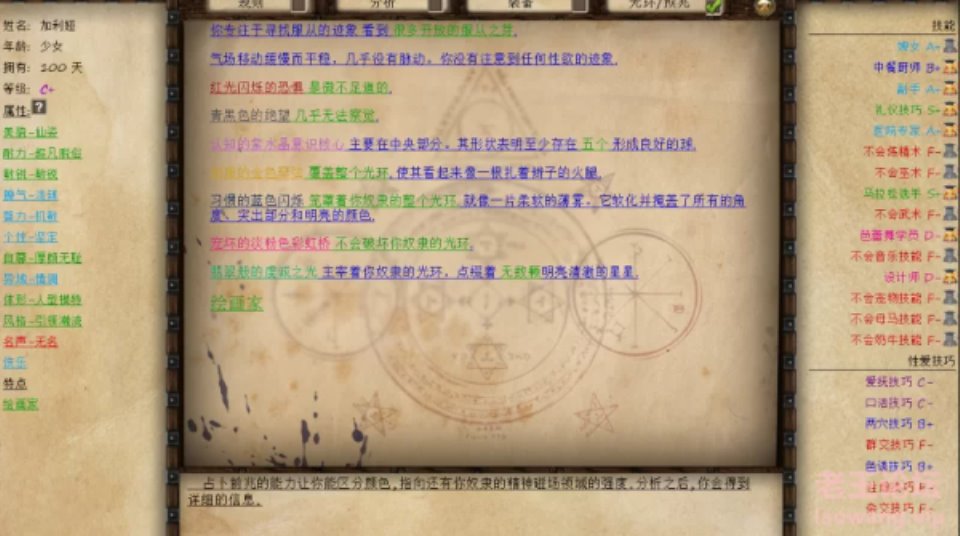 规则 分析 装备 光环/预兆
姓名: 加利娅
年龄: 少女
拥有: 100 天
等级: C+
属性:
美貌-仙姿
耐力-超凡脱俗
敏锐-敏锐
智力-机敏
个性-坚定
异域-情调
体形-人型模特
风格-引领潮流
名声-无名
快乐
特点
绘画家
你专注于寻找服从的迹象 看到 很多开放的服从之芽.
气场移动缓慢而平稳, 几乎没有脉动. 你没有注意到任何性欲的迹象.
红光闪烁的恐惧 是微不足道的.
青黑色的绝望 几乎无法察觉.
认知的紫水晶意识核心 主要在中央部分. 其形状表明至少存在 五个 形成良好的球.
覆盖整个光环, 使其看起来像一根扎着辫子的火腿.
习惯的蓝色闪烁 笼罩着你奴隶的整个光环. 就像一片柔软的薄雾. 它软化并掩盖了所有的角度、突出部分和明亮的颜色.
宠坏的淡粉色彩虹桥 不会破坏你奴隶的光环.
主宰着你奴隶的光环, 点缀着 无数颗明亮清澈的星星.
绘画家
占卜前兆的能力让你能区分颜色,指向还有你奴隶的精神磁场领域的强度.分析之后,你会得到
详细的信息.
技能
中餐厨师 B+
助手 A+
礼仪技巧 S+
不会炼精术 F-
不会巫术 F-
马拉松选手 S+
不会武术 F-
芭蕾舞学员 D-
不会音乐技能 F-
设计师 D-
不会宠物技能 F-
不会母马技能 F-
不会奶牛技能 F-
性爱技巧
爱抚技巧 C-
口活技巧 C-
两穴技巧 B+
群交技巧 F-